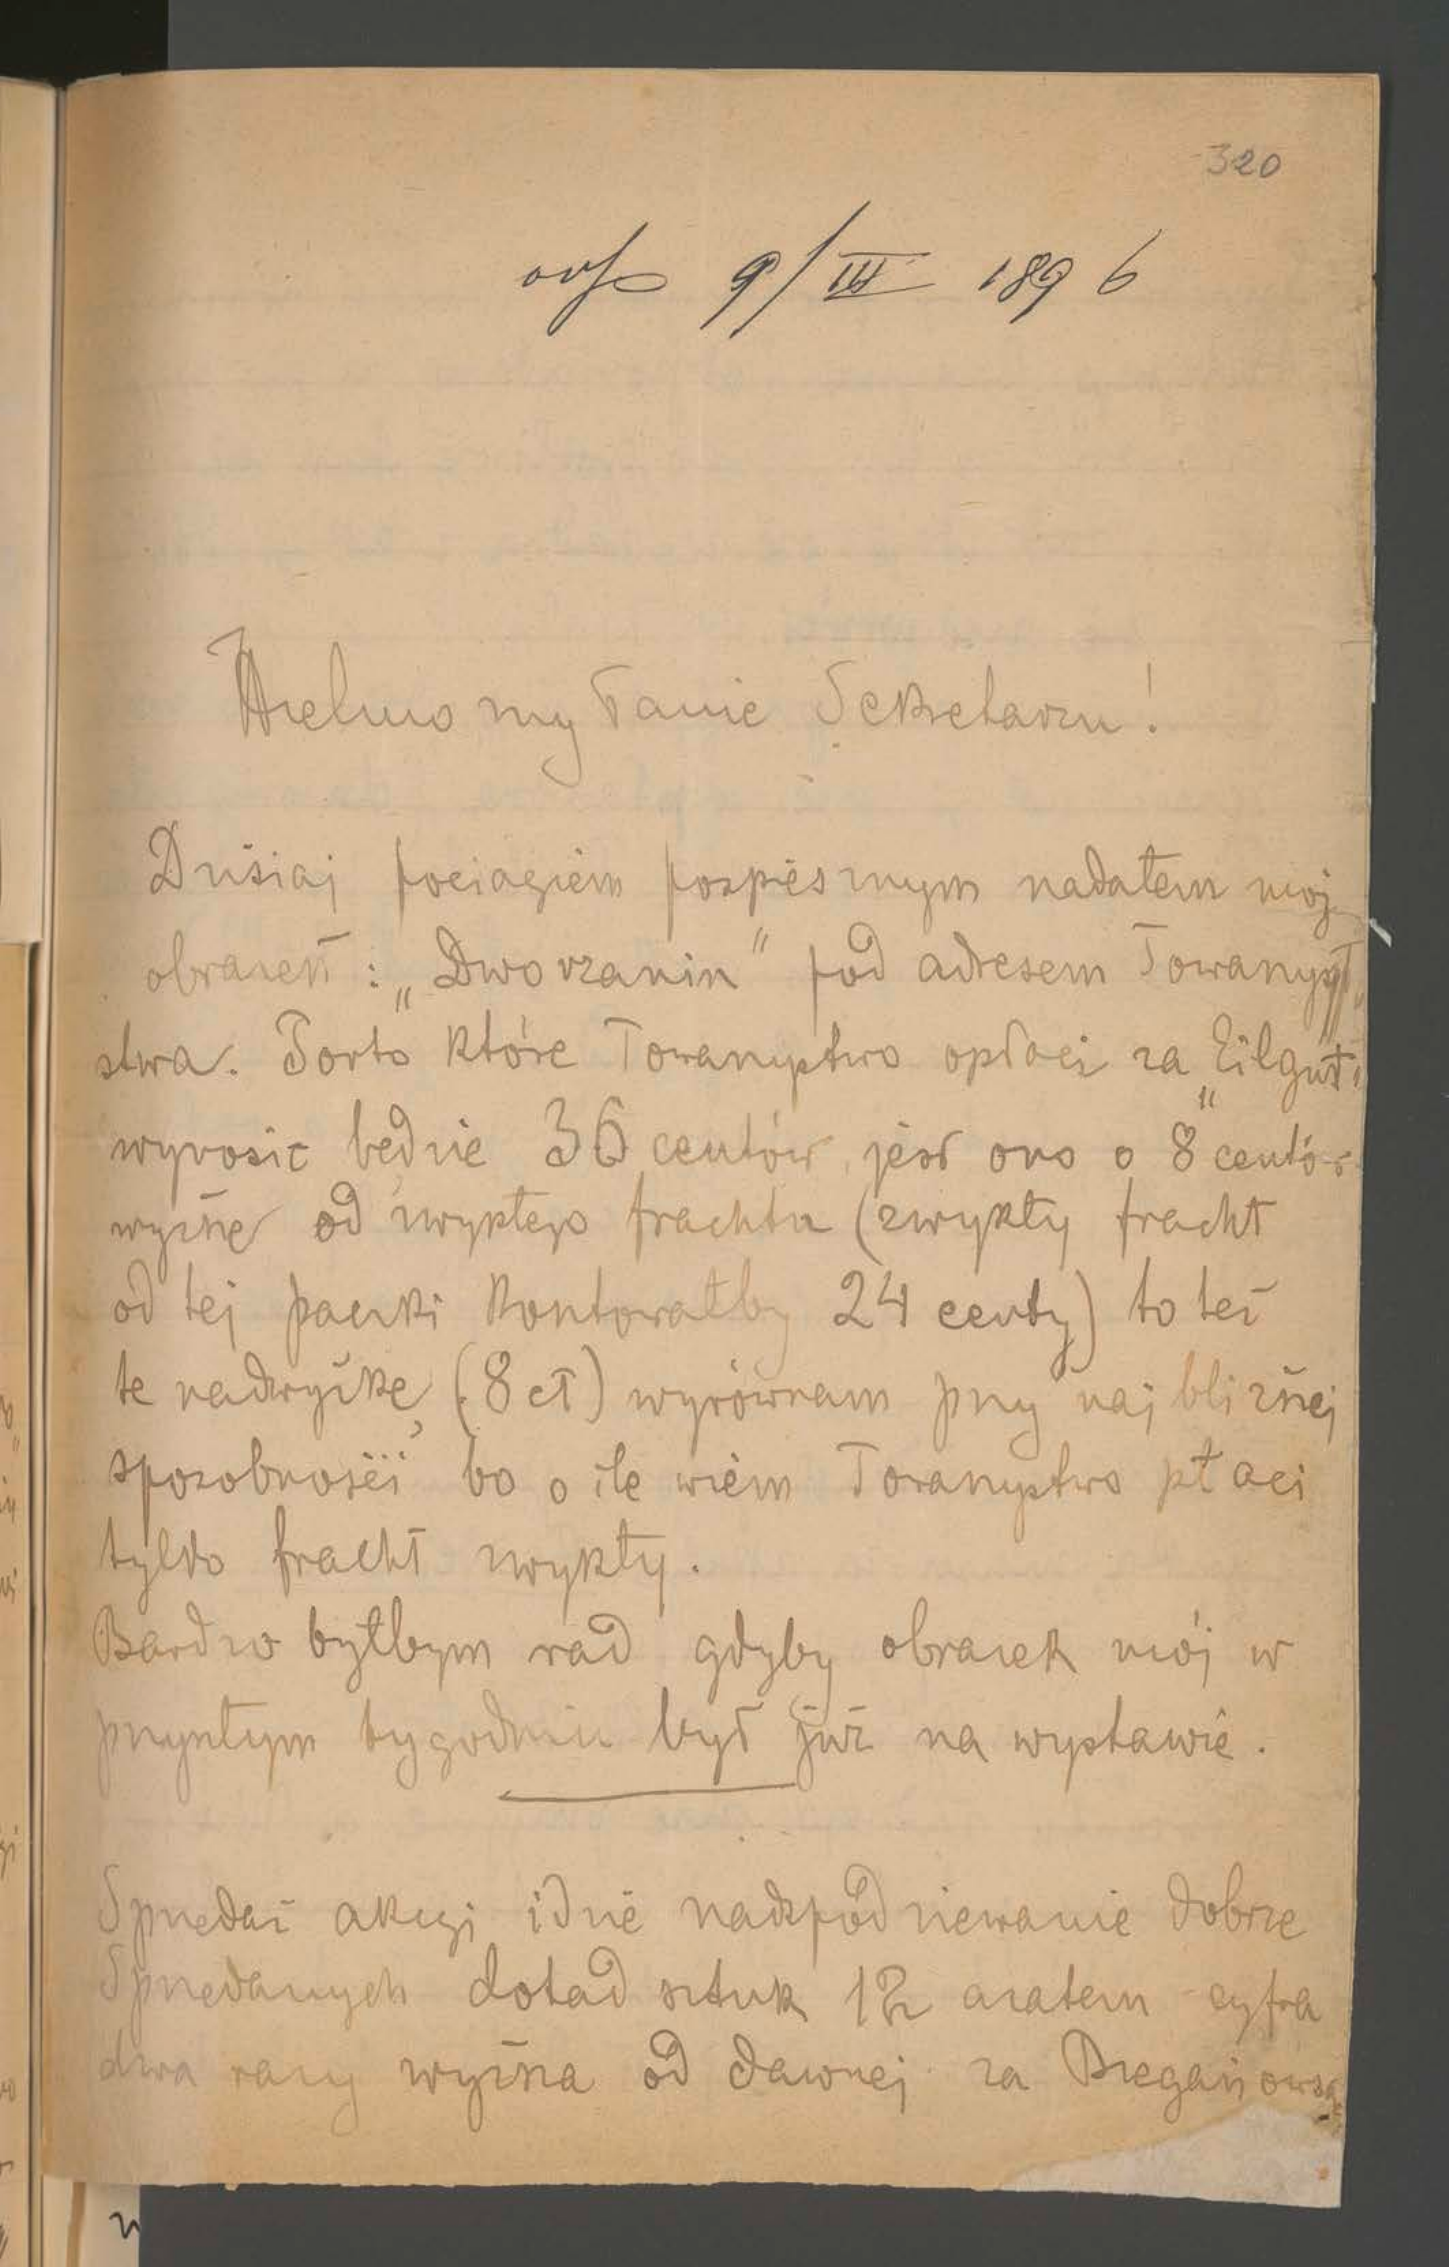 320
odp 9/III 1896
Wielmożny Panie Sekretarzu!
Dzisiaj pociagiem pospiesznym nadałem moj
obrazek: „Dworzanin" pod adresem Towarzy-
stwa. Porto które Towarzystwo opłaci za „Eilgut"
wynosić będzie 36 centów, jest ono o 8 centów
wyższe od zwykłego frachtu (zwykły fracht
od tej paczki kosztowałby 24 centy) to też
te nadwyżkę (8 ct) wyrównam przy najbliższej
sposobności bo o ile wiem Towarzystwo płaci
tylko fracht zwykły.
Bardzo byłbym rad gdyby obrazek mój w
przyszłym tygodniu był już na wystawie.
Sprzedaż akcyj idzie nadspodziewanie dobrze
Sprzedanych dotad sztuk 12 azatem cyfra
dwa razy wyższa od dawnej za